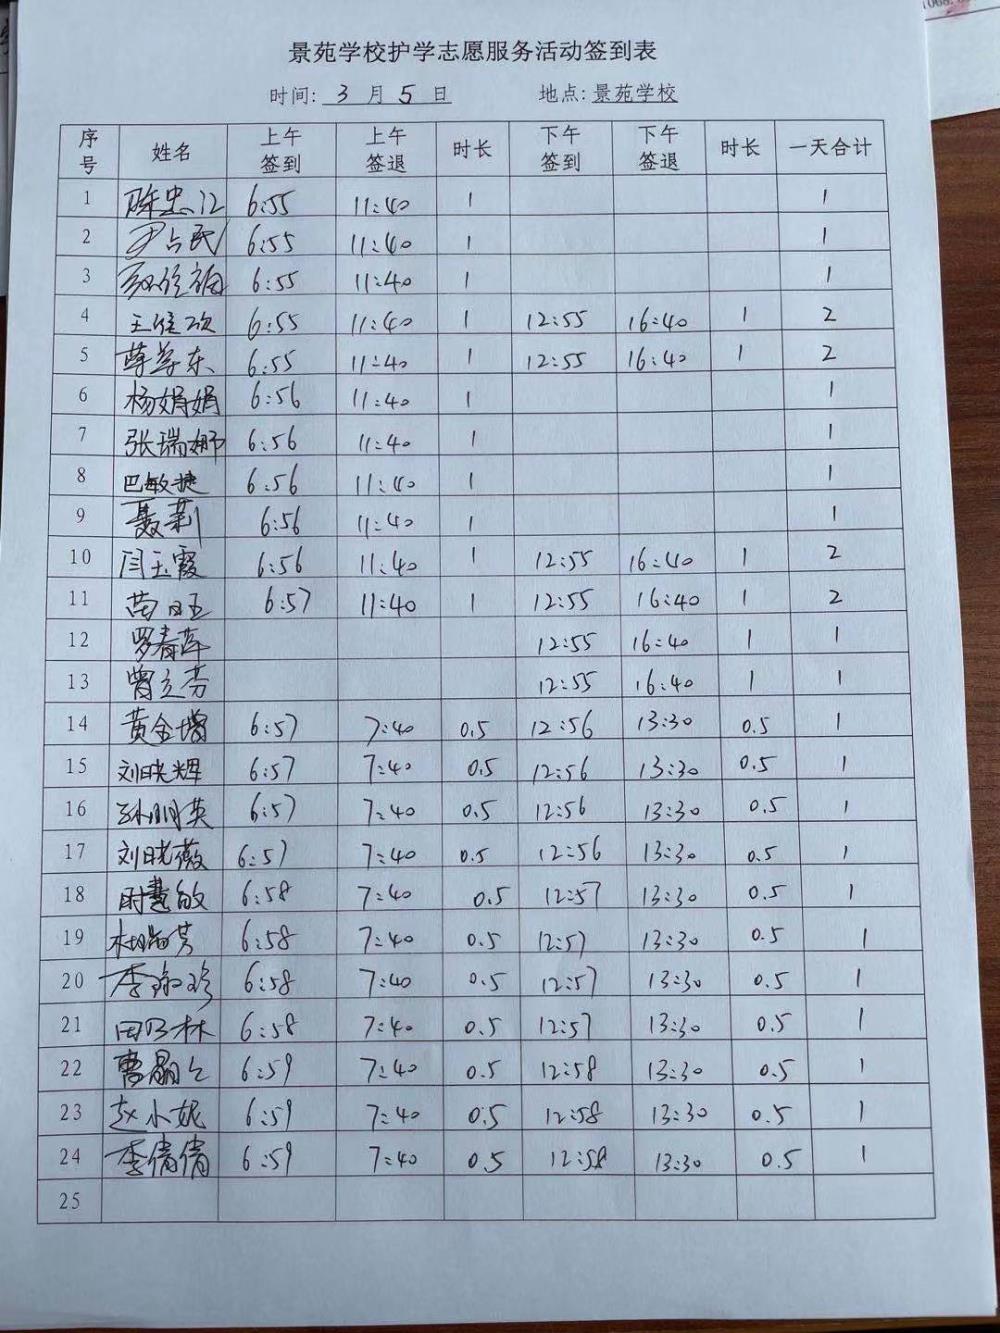 景苑学校护学志愿服务活动签到表
时间: 3 月 5 日 地点: 景苑学校
序号 姓名 上午签到 上午签退 时长 下午签到 下午签退 时长 一天合计
1 陈忠江 6:55 11:40 1 1
2 尹占民 6:55 11:40 1 1
3 6:55 11:40 1 1
4 6:55 11:40 1 12:55 16:40 1 2
5 6:55 11:40 1 12:55 16:40 1 2
6 杨娟娟 6:56 11:40 1 1
7 张瑞娜 6:56 11:40 1 1
8 巴敏捷 6:56 11:40 1 1
9 聂莉 6:56 11:40 1 1
10 闫玉霞 6:56 11:40 1 12:55 16:40 1 2
11 6:57 11:40 1 12:55 16:40 1 2
12 罗春萍 12:55 16:40 1 1
13 曾立芬 12:55 16:40 1 1
14 黄金增 6:57 7:40 0.5 12:56 13:30 0.5 1
15 刘晓辉 6:57 7:40 0.5 12:56 13:30 0.5 1
16 孙明英 6:57 7:40 0.5 12:56 13:30 0.5 1
17 刘晓薇 6:57 7:40 0.5 12:56 13:30 0.5 1
18 时慧敏 6:58 7:40 0.5 12:57 13:30 0.5 1
19 6:58 7:40 0.5 12:57 13:30 0.5 1
20 6:58 7:40 0.5 12:57 13:30 0.5 1
21 田乃林 6:58 7:40 0.5 12:57 13:30 0.5 1
22 6:59 7:40 0.5 12:58 13:30 0.5 1
23 赵小妮 6:59 7:40 0.5 12:58 13:30 0.5 1
24 李倩倩 6:59 7:40 0.5 12:58 13:30 0.5 1
25